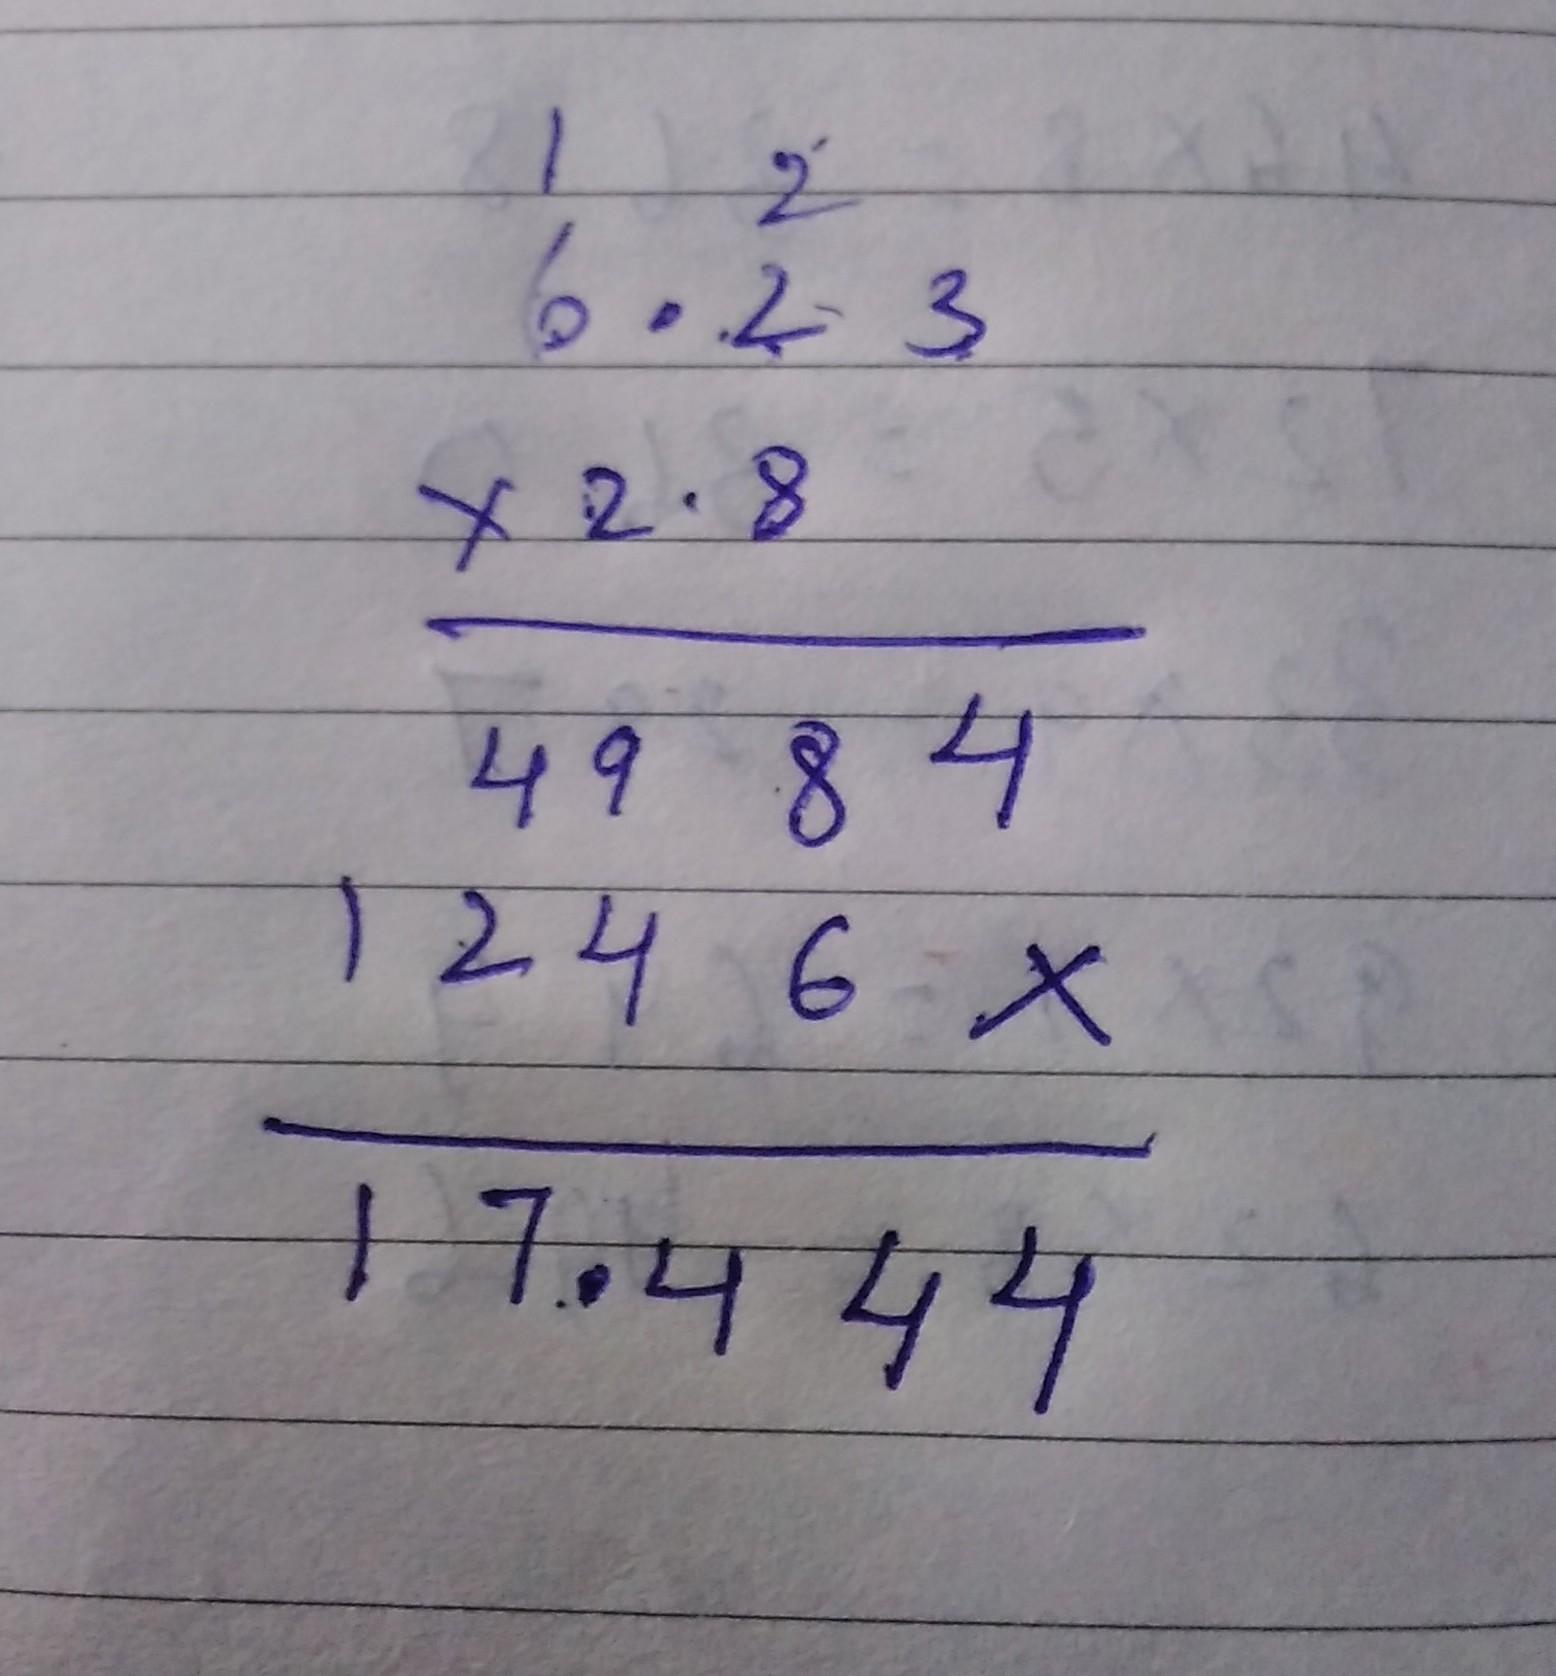 1 2
6.23
x 2.8
4984
1246x
17.444